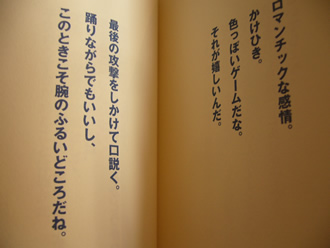 ロマンチックな感情。
かけひき。
色っぽいゲームだな。
それが嬉しいんだ。
最後の攻撃をしかけて口説く。
踊りながらでもいいし、
このときこそ腕のふるいどころだね。